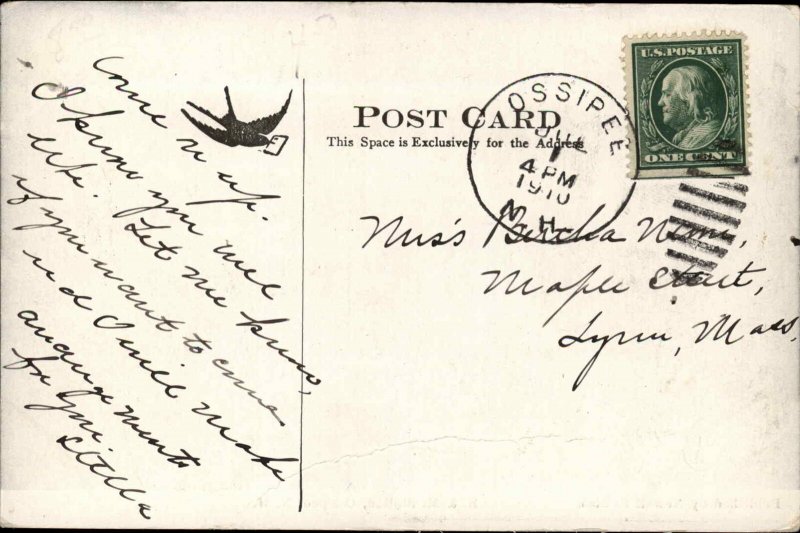 Come n up.
I know you will
like. Let me know,
if you want to come
and I will make
arrangements
for you.
Stella
POST CARD
This Space is Exclusively for the Address
OSSIPEE
JUL
1
4 PM
1910
N. H.
U.S. POSTAGE
ONE CENT
Miss Bertha
Maple Street,
Lynn, Mass.